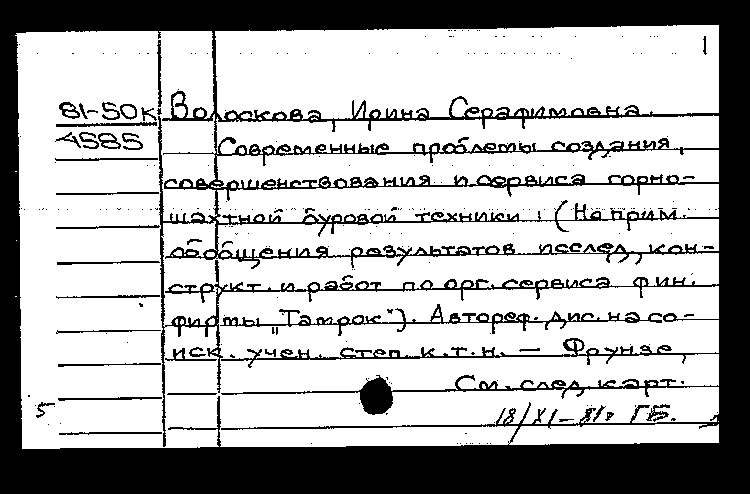 1
81-50к Волоскова, Ирина Серафимовна.
4585 Современные проблемы создания,
совершенствования и сервиса горно-
шахтной буровой техники: (На прим.
обобщения результатов исслед., кон-
структ. и работ по орг. сервиса фин.
фирмы „Тамрок"). Автореф. дис. на со-
иск. учен. степ. к.т.н. — Фрунзе,
См. след. карт.
5 18/XI-81г ГБ.